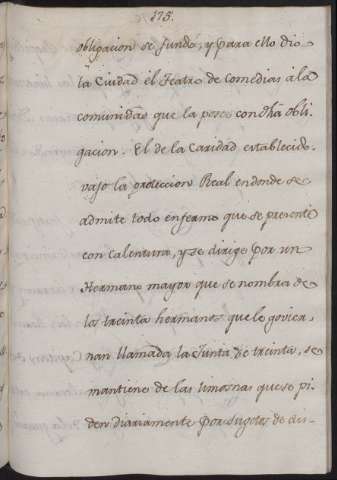 175.
obligacion se fundó, y para ello dio
la Ciudad el Teatro de Comedias á la
comunidad que la posee con dha obli-
gacion. El de la Caridad establecido
vajo la proteccion Real endonde se
admite todo enfermo que se presente
con Calentura, y se dirige por un
Hermano mayor que se nombra de
los treinta hermanos que le govier-
nan llamada la Junta de treinta, se
mantiene de las limosnas que se pi-
den diariamente por Sugetos de dis-